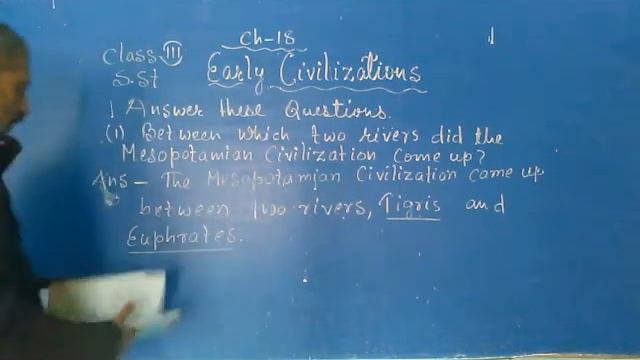 Ch-18
Class III
S.St
Early Civilizations
1 Answer these Questions.
(1) Between which two rivers did the
Mesopotamian Civilization Come up?
Ans - The Mesopotamian Civilization came up
between two rivers, Tigris and
Euphrates.